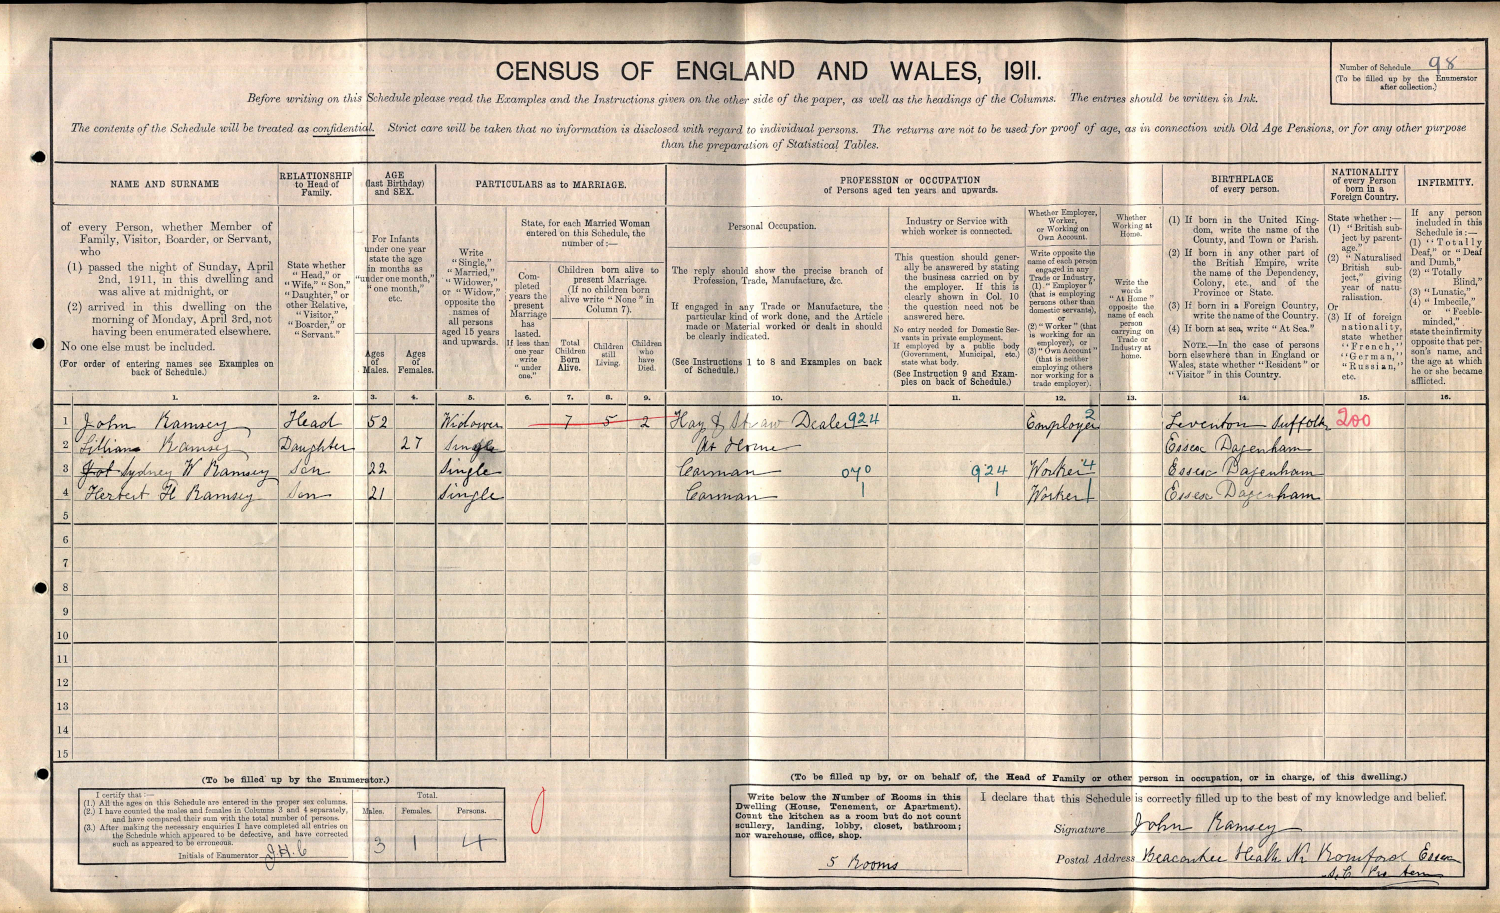 CENSUS OF ENGLAND AND WALES, 1911.
Number of Schedule 98
(To be filled up by the Enumerator
after collection.)
Before writing on this Schedule please read the Examples and the Instructions given on the other side of the paper, as well as the headings of the Columns. The entries should be written in Ink.
The contents of the Schedule will be treated as confidential. Strict care will be taken that no information is disclosed with regard to individual persons. The returns are not to be used for proof of age, as in connection with Old Age Pensions, or for any other purpose
than the preparation of Statistical Tables.
NAME AND SURNAME
of every Person, whether Member of
Family, Visitor, Boarder, or Servant,
who
(1) passed the night of Sunday, April
2nd, 1911, in this dwelling and
was alive at midnight, or
(2) arrived in this dwelling on the
morning of Monday, April 3rd, not
having been enumerated elsewhere.
No one else must be included.
(For order of entering names see Examples on
back of Schedule.)
RELATIONSHIP
to Head of
Family.
State whether
"Head," or
"Wife," "Son,"
"Daughter," or
other Relative,
"Visitor,"
"Boarder," or
"Servant."
AGE
(last Birthday)
and SEX.
For Infants
under one year
state the age
in months as
"under one month,"
"one month,"
etc.
Ages
of
Males.
Ages
of
Females.
PARTICULARS as to MARRIAGE.
Write
"Single,"
"Married,"
"Widower,"
or "Widow,"
opposite the
names of
all persons
aged 15 years
and upwards.
State, for each Married Woman
entered on this Schedule, the
number of:—
Com-
pleted
years the
present
Marriage
has
lasted.
If less than
one year
write
"under
one."
Children born alive to
present Marriage.
(If no children born
alive write "None" in
Column 7).
Total
Children
Born
Alive.
Children
still
Living.
Children
who
have
Died.
PROFESSION or OCCUPATION
of Persons aged ten years and upwards.
Personal Occupation.
The reply should show the precise branch of
Profession, Trade, Manufacture, &c.
If engaged in any Trade or Manufacture, the
particular kind of work done, and the Article
made or Material worked or dealt in should
be clearly indicated.
(See Instructions 1 to 8 and Examples on back
of Schedule.)
Industry or Service with
which worker is connected.
This question should gener-
ally be answered by stating
the business carried on by
the employer. If this is
clearly shown in Col. 10
the question need not be
answered here.
No entry needed for Domestic Ser-
vants in private employment.
If employed by a public body
(Government, Municipal, etc.)
state what body.
(See Instruction 9 and Exam-
ples on back of Schedule.)
Whether Employer,
Worker,
or Working on
Own Account.
Write opposite the
name of each person
engaged in any
Trade or Industry,
(1) "Employer"
(that is employing
persons other than
domestic servants),
or
(2) "Worker" (that
is working for an
employer), or
(3) "Own Account"
(that is neither
employing others
nor working for a
trade employer).
Whether
Working at
Home.
Write the
words
"At Home"
opposite the
name of each
person
carrying on
Trade or
Industry at
home.
BIRTHPLACE
of every person.
(1) If born in the United King-
dom, write the name of the
County, and Town or Parish.
(2) If born in any other part of
the British Empire, write
the name of the Dependency,
Colony, etc., and of the
Province or State.
(3) If born in a Foreign Country,
write the name of the Country.
(4) If born at sea, write "At Sea."
NOTE.—In the case of persons
born elsewhere than in England or
Wales, state whether "Resident" or
"Visitor" in this Country.
NATIONALITY
of every Person
born in a
Foreign Country.
State whether:—
(1) "British sub-
ject by parent-
age."
(2) "Naturalised
British sub-
ject," giving
year of natu-
ralisation.
Or
(3) If of foreign
nationality,
state whether
"French,"
"German,"
"Russian,"
etc.
INFIRMITY.
If any person
included in this
Schedule is:—
(1) "Totally
Deaf," or "Deaf
and Dumb,"
(2) "Totally
Blind,"
(3) "Lunatic,"
(4) "Imbecile,"
or "Feeble-
minded,"
state the infirmity
opposite that per-
son's name, and
the age at which
he or she became
afflicted.
1. 2. 3. 4. 5. 6. 7. 8. 9. 10. 11. 12. 13. 14. 15. 16.
1 John Ramsey Head 52 Widower 7 5 2 Hay & Straw Dealer 924 Employer 2 Leventon Suffolk 200
2 Lilliann Ramsey Daughter 27 Single At Home Essex Dagenham
3 Sydney W Ramsey Son 22 Single Carman 070 924 Worker 4 Essex Dagenham
4 Herbert H Ramsey Son 21 Single Carman Worker Essex Dagenham
5
6
7
8
9
10
11
12
13
14
15
(To be filled up by the Enumerator.)
I certify that:—
(1.) All the ages on this Schedule are entered in the proper sex columns.
(2.) I have counted the males and females in Columns 3 and 4 separately,
and have compared their sum with the total number of persons.
(3.) After making the necessary enquiries I have completed all entries on
the Schedule which appeared to be defective, and have corrected
such as appeared to be erroneous.
Initials of Enumerator J.H.C
Total.
Males. Females. Persons.
3 1 4
(To be filled up by, or on behalf of, the Head of Family or other person in occupation, or in charge, of this dwelling.)
Write below the Number of Rooms in this
Dwelling (House, Tenement, or Apartment).
Count the kitchen as a room but do not count
scullery, landing, lobby, closet, bathroom;
nor warehouse, office, shop.
5 Rooms
I declare that this Schedule is correctly filled up to the best of my knowledge and belief.
Signature John Ramsey
Postal Address Beacontree Heath Nr Romford Essex